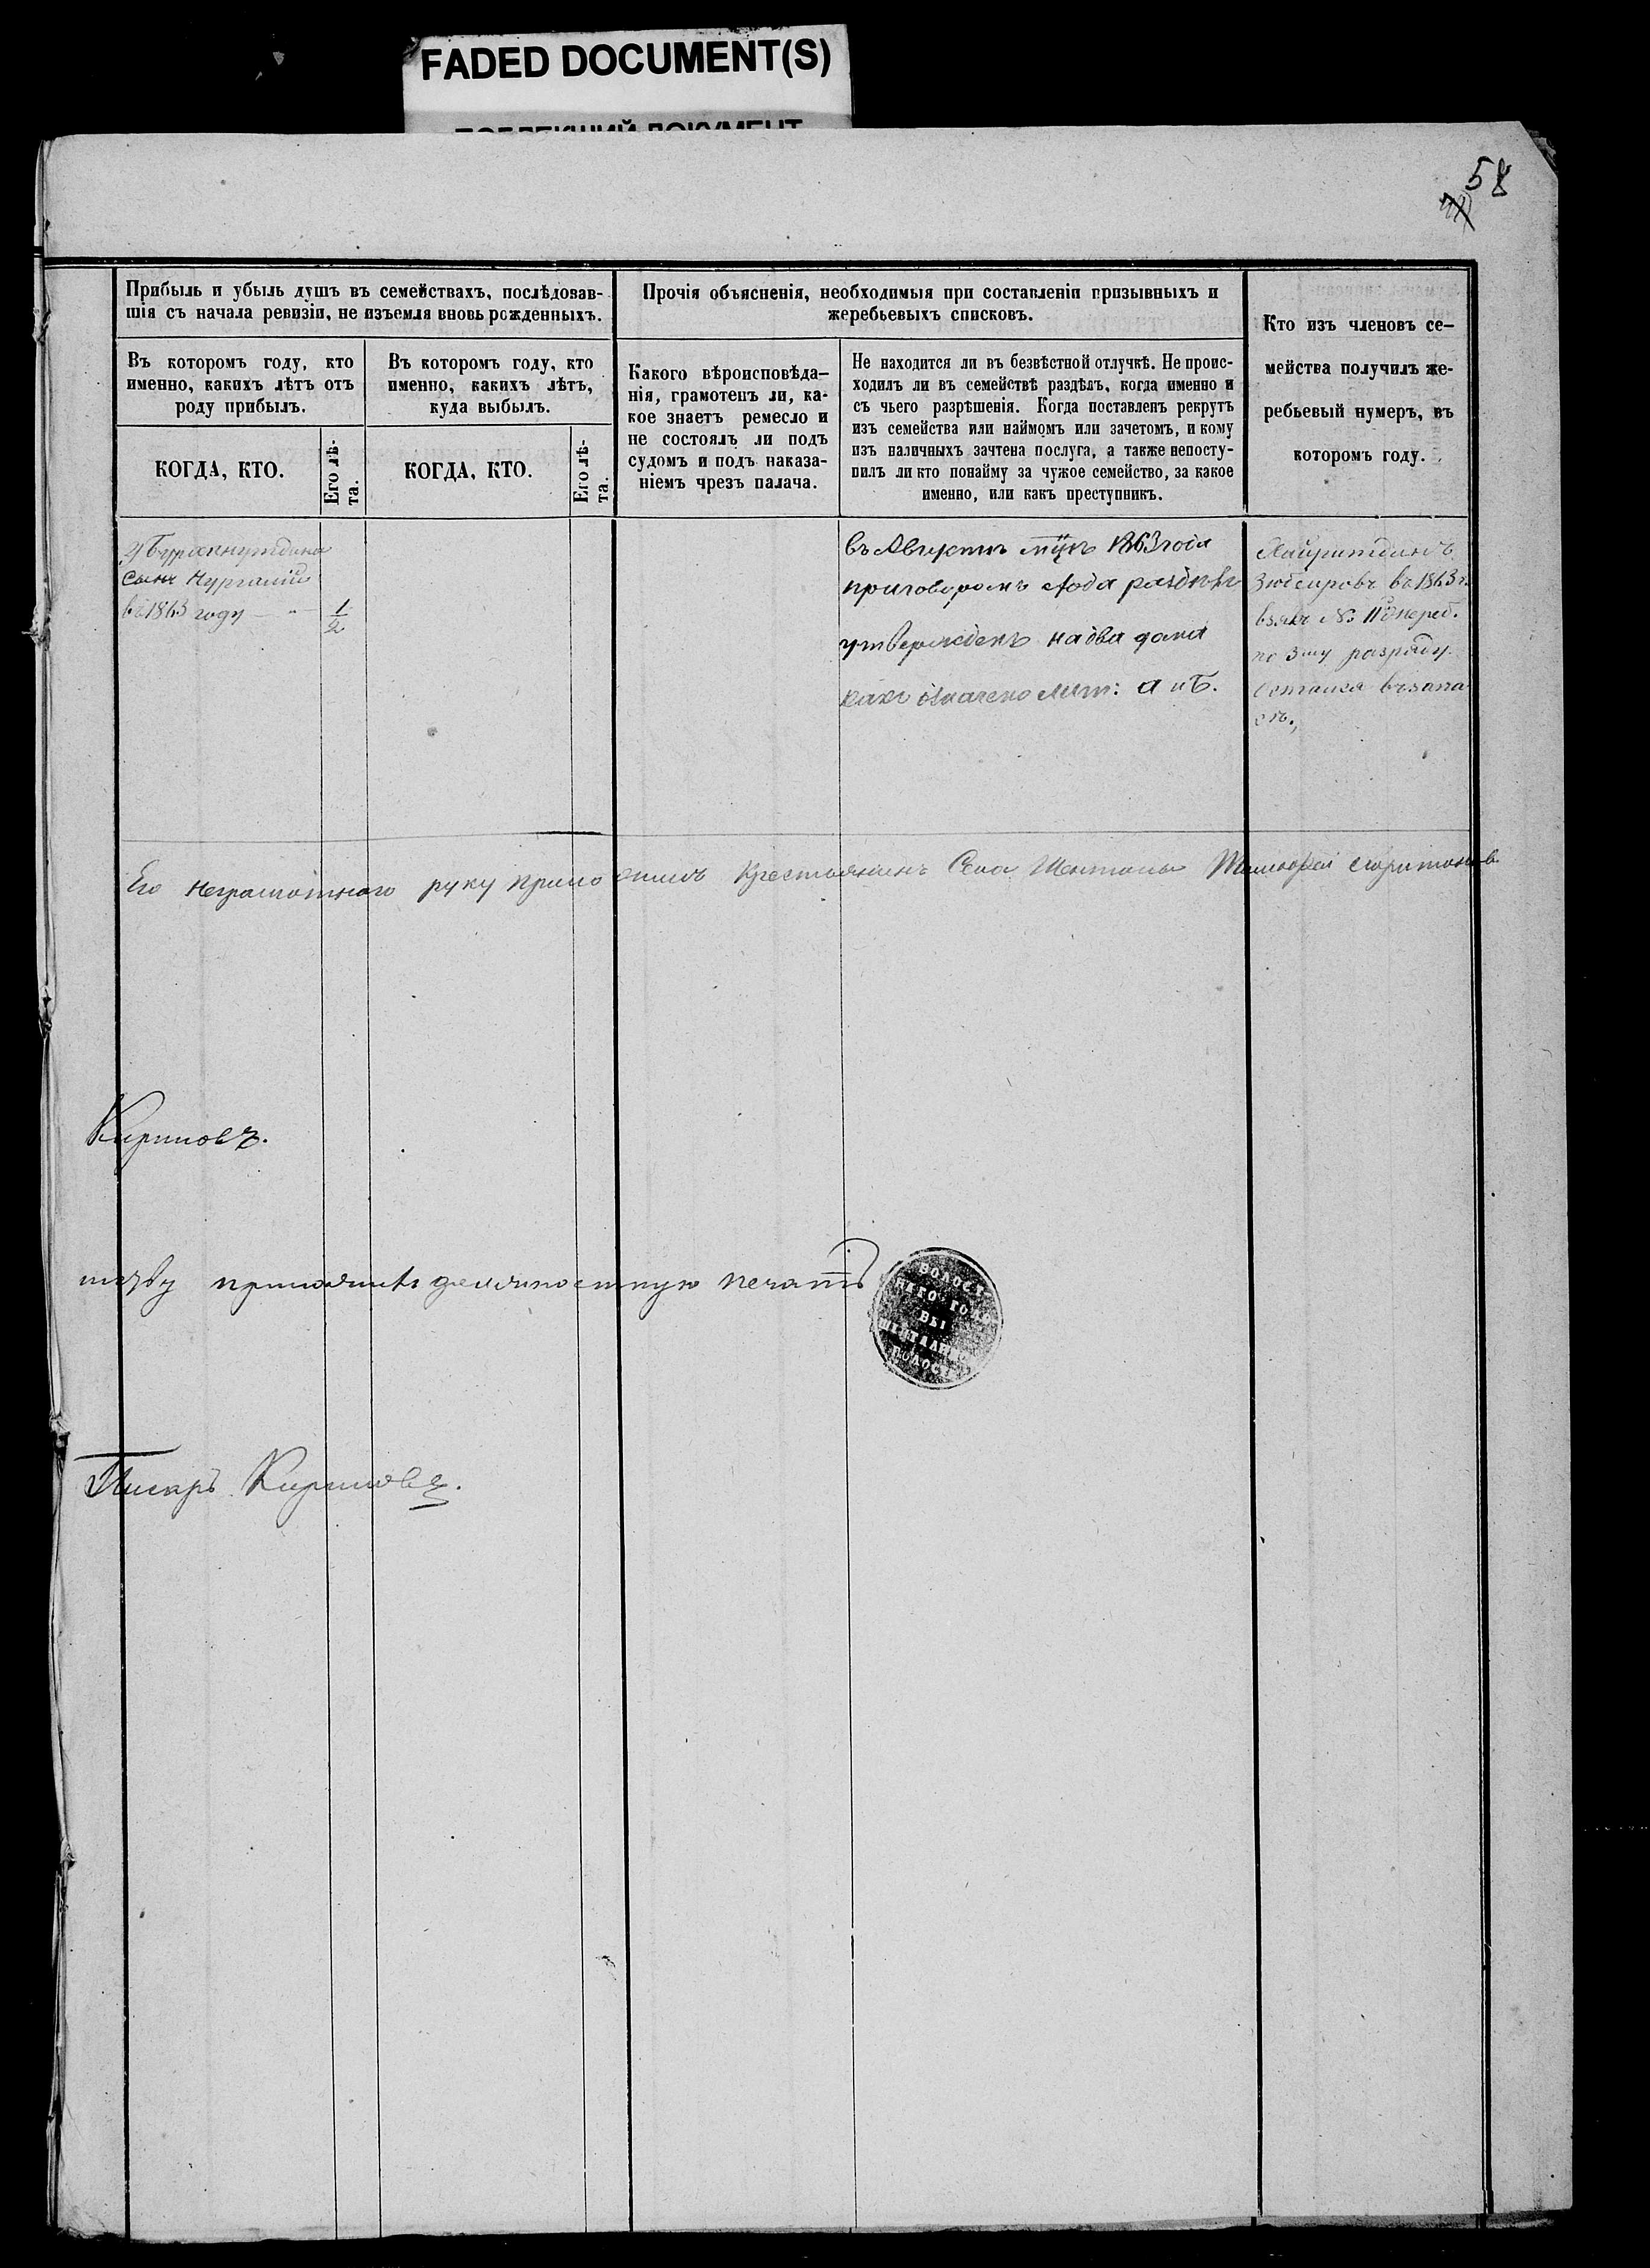 FADED DOCUMENT(S)
58
Прибыль и убыль душъ въ семействахъ, послѣдовав-
шія съ начала ревизіи, не изъемля вновь рожденныхъ.
Прочія объясненія, необходимыя при составленіи призывныхъ и
жеребьевыхъ списковъ.
Кто изъ членовъ се-
мейства получилъ же-
ребьевый нумеръ, въ
которомъ году.
Въ которомъ году, кто
именно, какихъ лѣтъ отъ
роду прибылъ.
Въ которомъ году, кто
именно, какихъ лѣтъ,
куда выбылъ.
Какого вѣроисповѣда-
нія, грамотенъ ли, ка-
кое знаетъ ремесло и
не состоялъ ли подъ
судомъ и подъ наказа-
ніемъ чрезъ палача.
Не находится ли въ безвѣстной отлучкѣ. Не проис-
ходилъ ли въ семействѣ раздѣлъ, когда именно и
съ чьего разрѣшенія. Когда поставленъ рекрутъ
изъ семейства или наймомъ или зачетомъ, и кому
изъ наличныхъ зачтена послуга, а также непосту-
пилъ ли кто понайму за чужое семейство, за какое
именно, или какъ преступникъ.
КОГДА, КТО.
Его лѣ-
та.
КОГДА, КТО.
Его лѣ-
та.
сынъ Нургалій
въ 1863 году — " — 1/2
въ Августѣ мцѣ 1863 года
приговоромъ схода раздѣлъ
утвержденъ на два дома
какъ означено лит: а и б.
въ 1863 г.
взялъ № 11 жереб.
по 3му разряду
остался въ запа-
сѣ.,
Его неграмотнаго руку приложилъ Крестьянинъ Села Шентапы
Кириловъ.
приложилъ должностную печать
ВОЛОСТ
НАГО ГОЛО
ВЫ
ВОЛОСТ
Писарь Кириловъ.